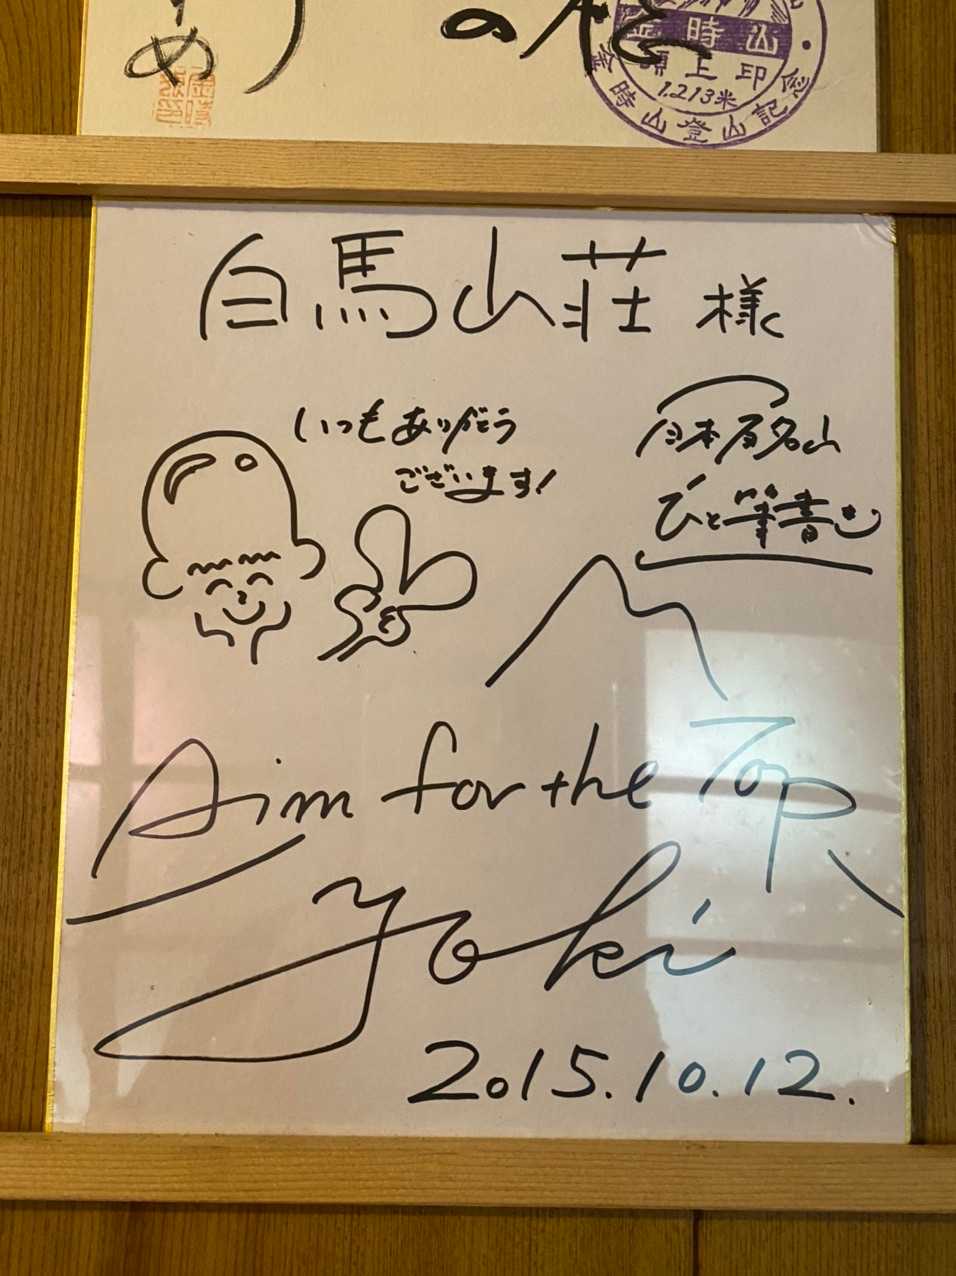 め
の
金時山
頂上印
1,213米
金時山登山記念
白馬山荘 様
いつもありがとう
ございます!
日本百名山
ひと筆書き
Aim for the Top
Yoki
2015.10.12.